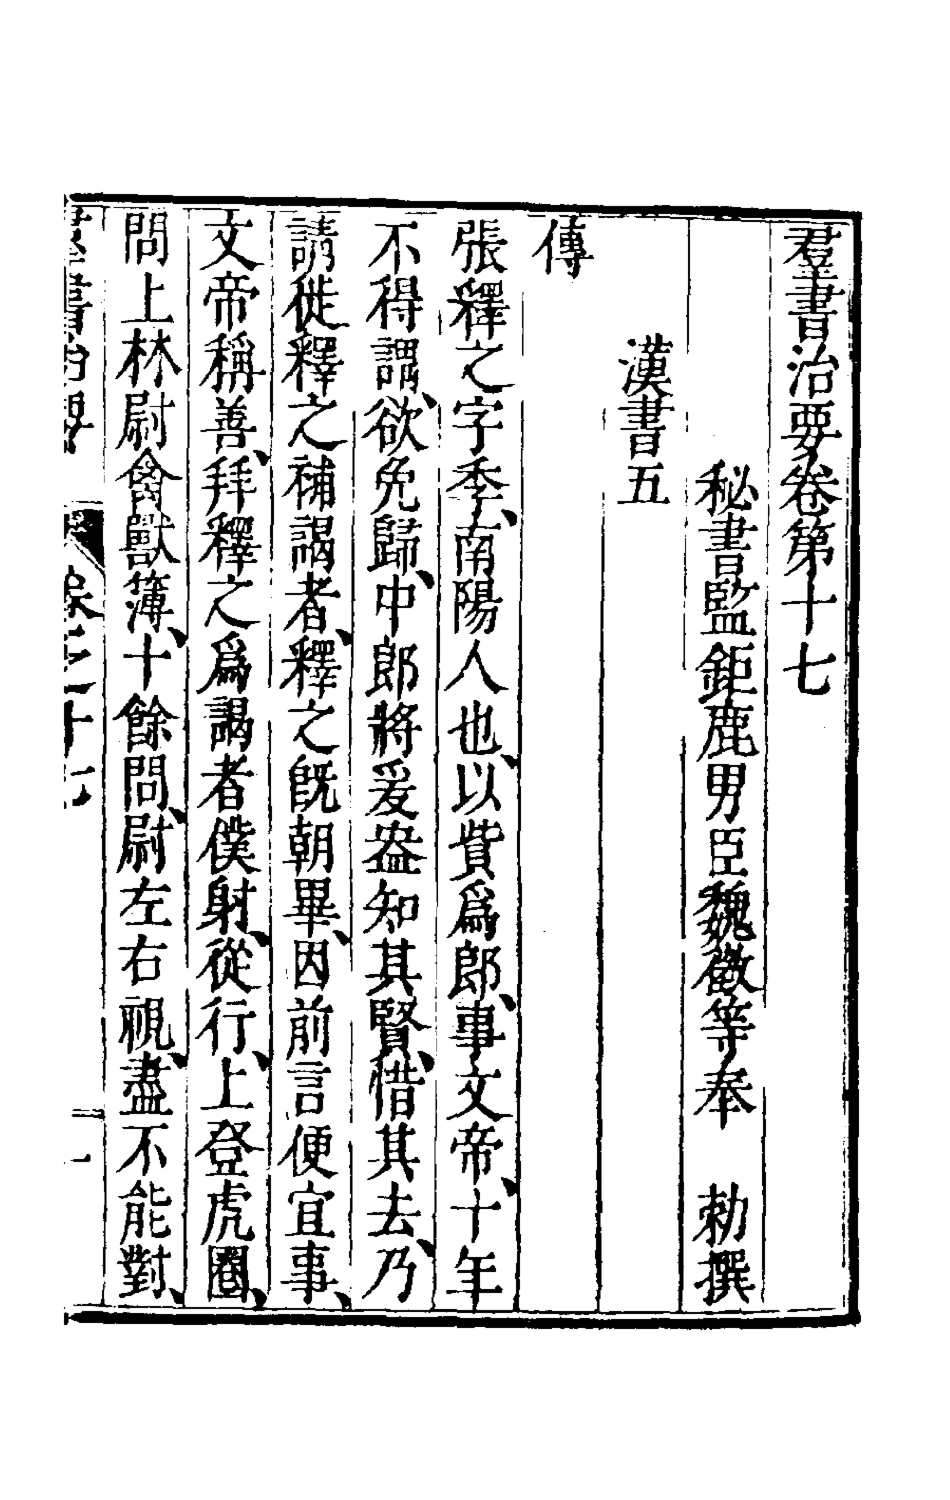 羣書治要卷第十七
秘書監鉅鹿男臣魏徵等奉　勑撰
漢書五
傳
張釋之字季、南陽人也、以貲爲郎、事文帝、十年
不得調、欲免歸、中郎將爰盎知其賢、惜其去、乃
請徙釋之補謁者、釋之旣朝畢、因前言便宜事、
文帝稱善、拜釋之爲謁者僕射、從行、上登虎圈、
問上林尉禽獸簿、十餘問、尉左右視、盡不能對、
羣書治要　卷之十七　一